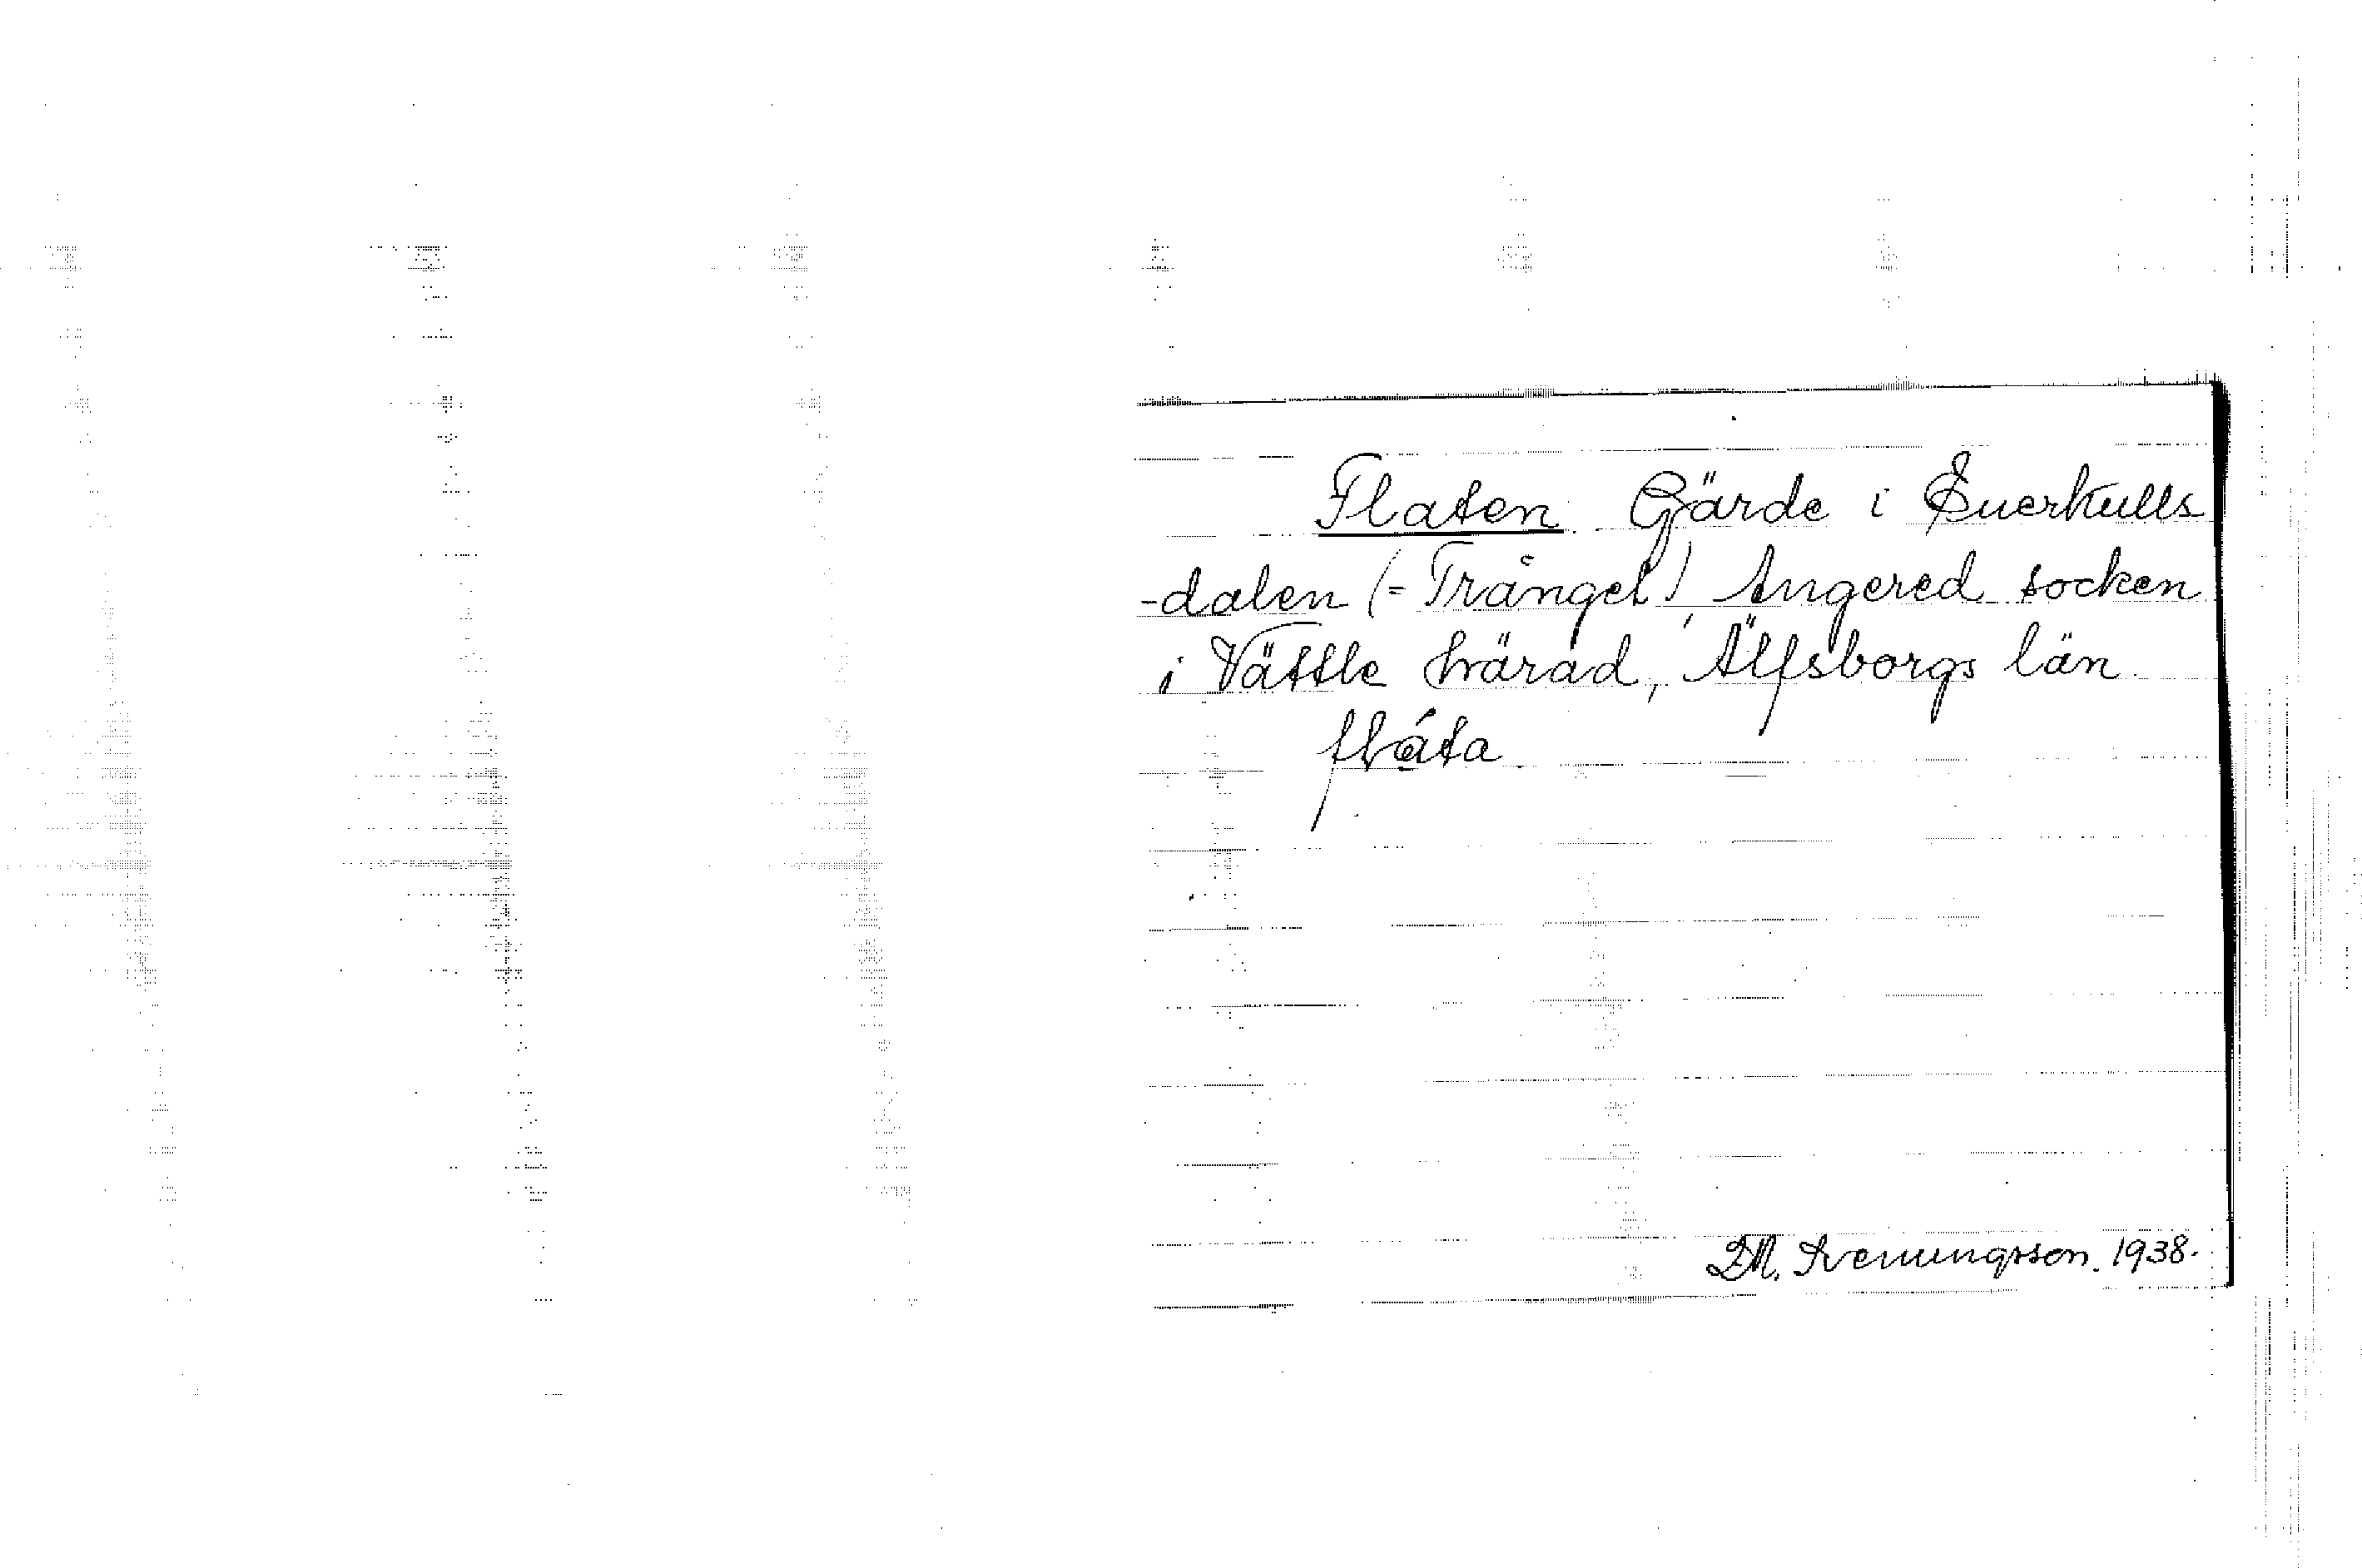 Flaten Gärde i Suerkulls
-dalen (= Trånget), Angered socken
i Vättle härad, Älfsborgs län.
flåta
D.M. Svenungsson. 1938.